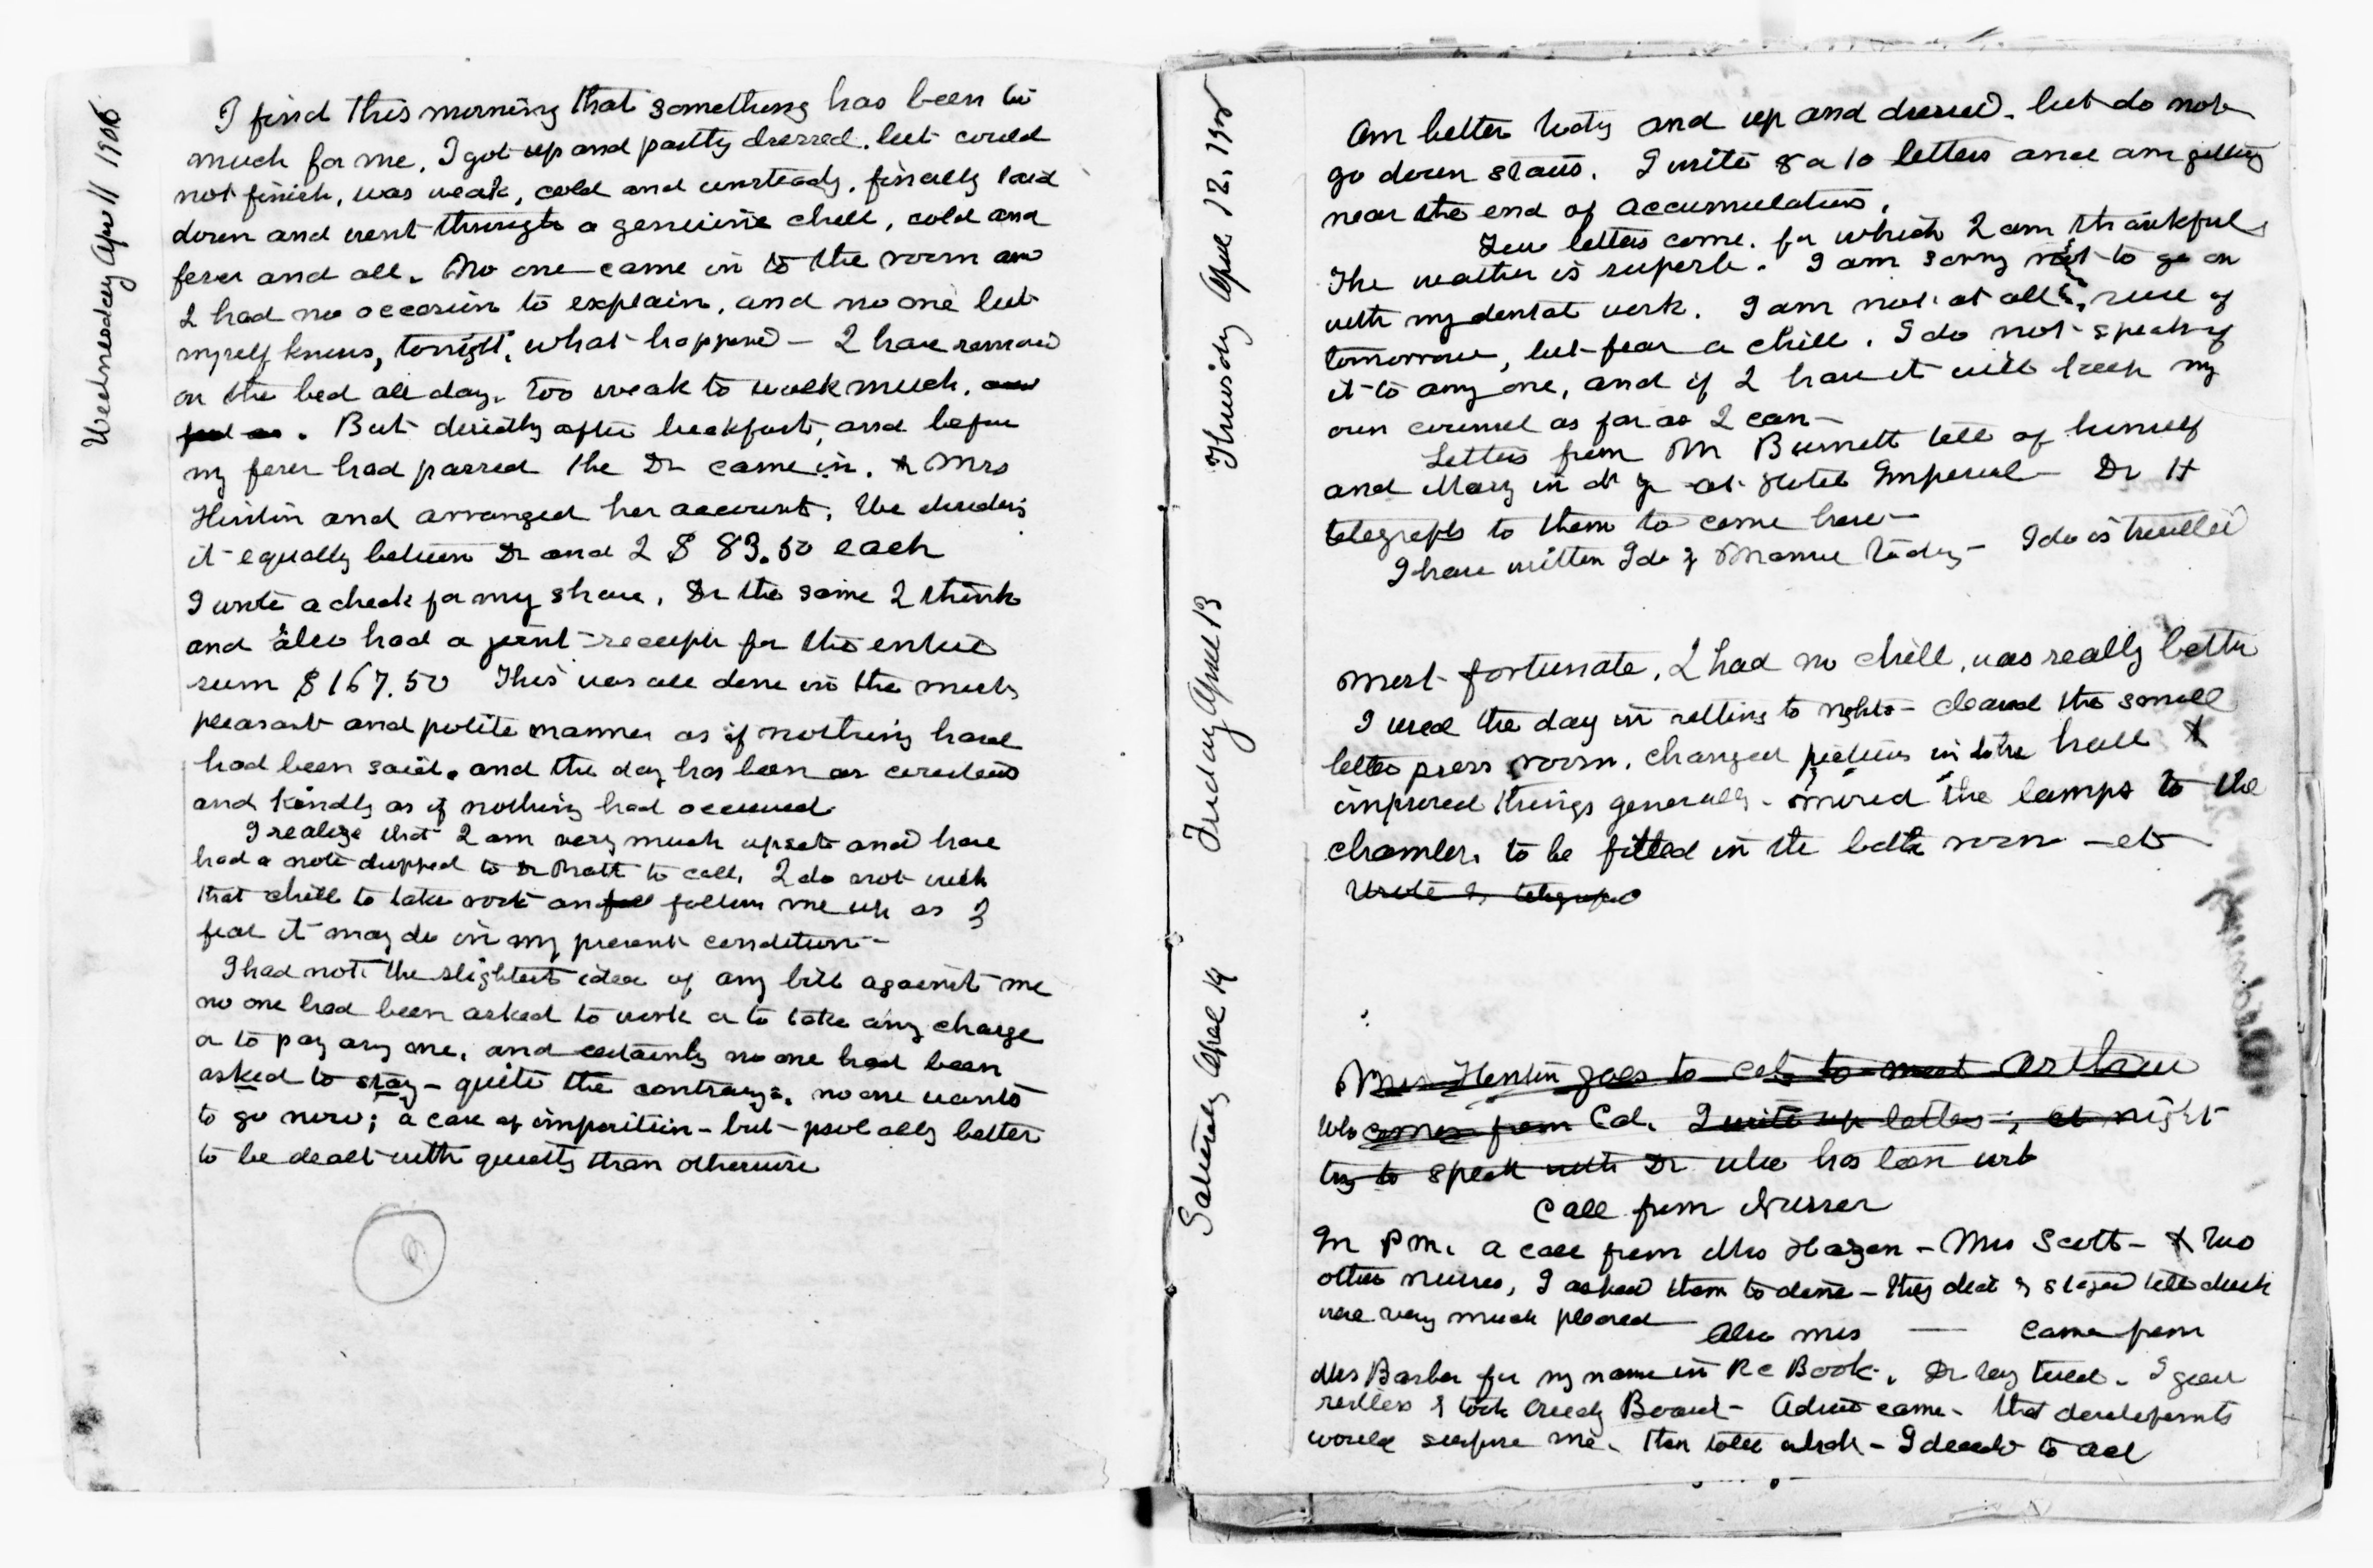 Wednesday April 11 1906
I find this morning that something has been too
much for me. I got up and partly dressed. but could
not finish, was weak, cold and unsteady. finally laid
down and went through a genuine chill, cold and
fever and all. No one came in to the room and
I had no occasion to explain, and no one but
myself knows, tonight, what happened — I have remained
on the bed all day. too weak to walk much.
But directly after breakfast, and before
my fever had passed the Dr came in. & Mrs
Hinton and arranged her account. We dividing
it equally between Dr and I $ 83.50 each
I wrote a check for my share, Dr the same I think
and also had a joint receipt for the entire
sum $ 167.50 This was all done in the most
pleasant and polite manner as if nothing hard
had been said. and the day has been as courteous
and kindly as if nothing had occurred
I realize that I am very much upset and have
had a note dropped to Dr Pratt to call, I do not wish
that chill to take root and follow me up as I
fear it may do in my present condition —
I had not the slightest idea of any bill against me
no one had been asked to work or to take any charge
or to pay any one. and certainly no one had been
asked to stay — quite the contrary. no one wants
to go now; a case of imposition — but probably better
to be dealt with quietly than otherwise
Thursday April 12. 1906
Am better today and up and dressed. but do not
go down stairs. I write 8 a 10 letters and am getting
near the end of accumulations.
Few letters come. for which I am thankful
The weather is superb. I am sorry not to go on
with my dental work. I am not at all sure of
tomorrow, but fear a chill. I do not speak of
it to any one, and if I have it will keep my
own counsel as far as I can —
Letters from Mr Burnett tell of himself
and Mary in N Y at Hotel Imperial — Dr H
telegraphs to them to come here —
I have written Ida & Mamie today — Ida is troubled
Friday April 13
Most fortunate, I had no chill, was really better
I used the day in setting to rights — cleared the small
letter press room. changed pictures in the hall &
improved things generally. moved the lamps to the
chamber. to be fitted in the bath room — etc
Wrote & telegraphed
Saturday April 14
Mrs Hinton goes to city to meet Arthur
who comes from Cal. I write up letters; at night
try to speak with Dr who has been out
Call from Nurses
In P.M. a call from Mrs Hazen — Mrs Scott — & two
other nurses, I asked them to dine — they did & stayed till dusk
were very much pleased — Also Mrs — came from
Mrs Barber for my name in Rc Book. Dr very tired. I grew
restless & took Ouidy Board — came. that developments
would surprise me. then told which — I decide to